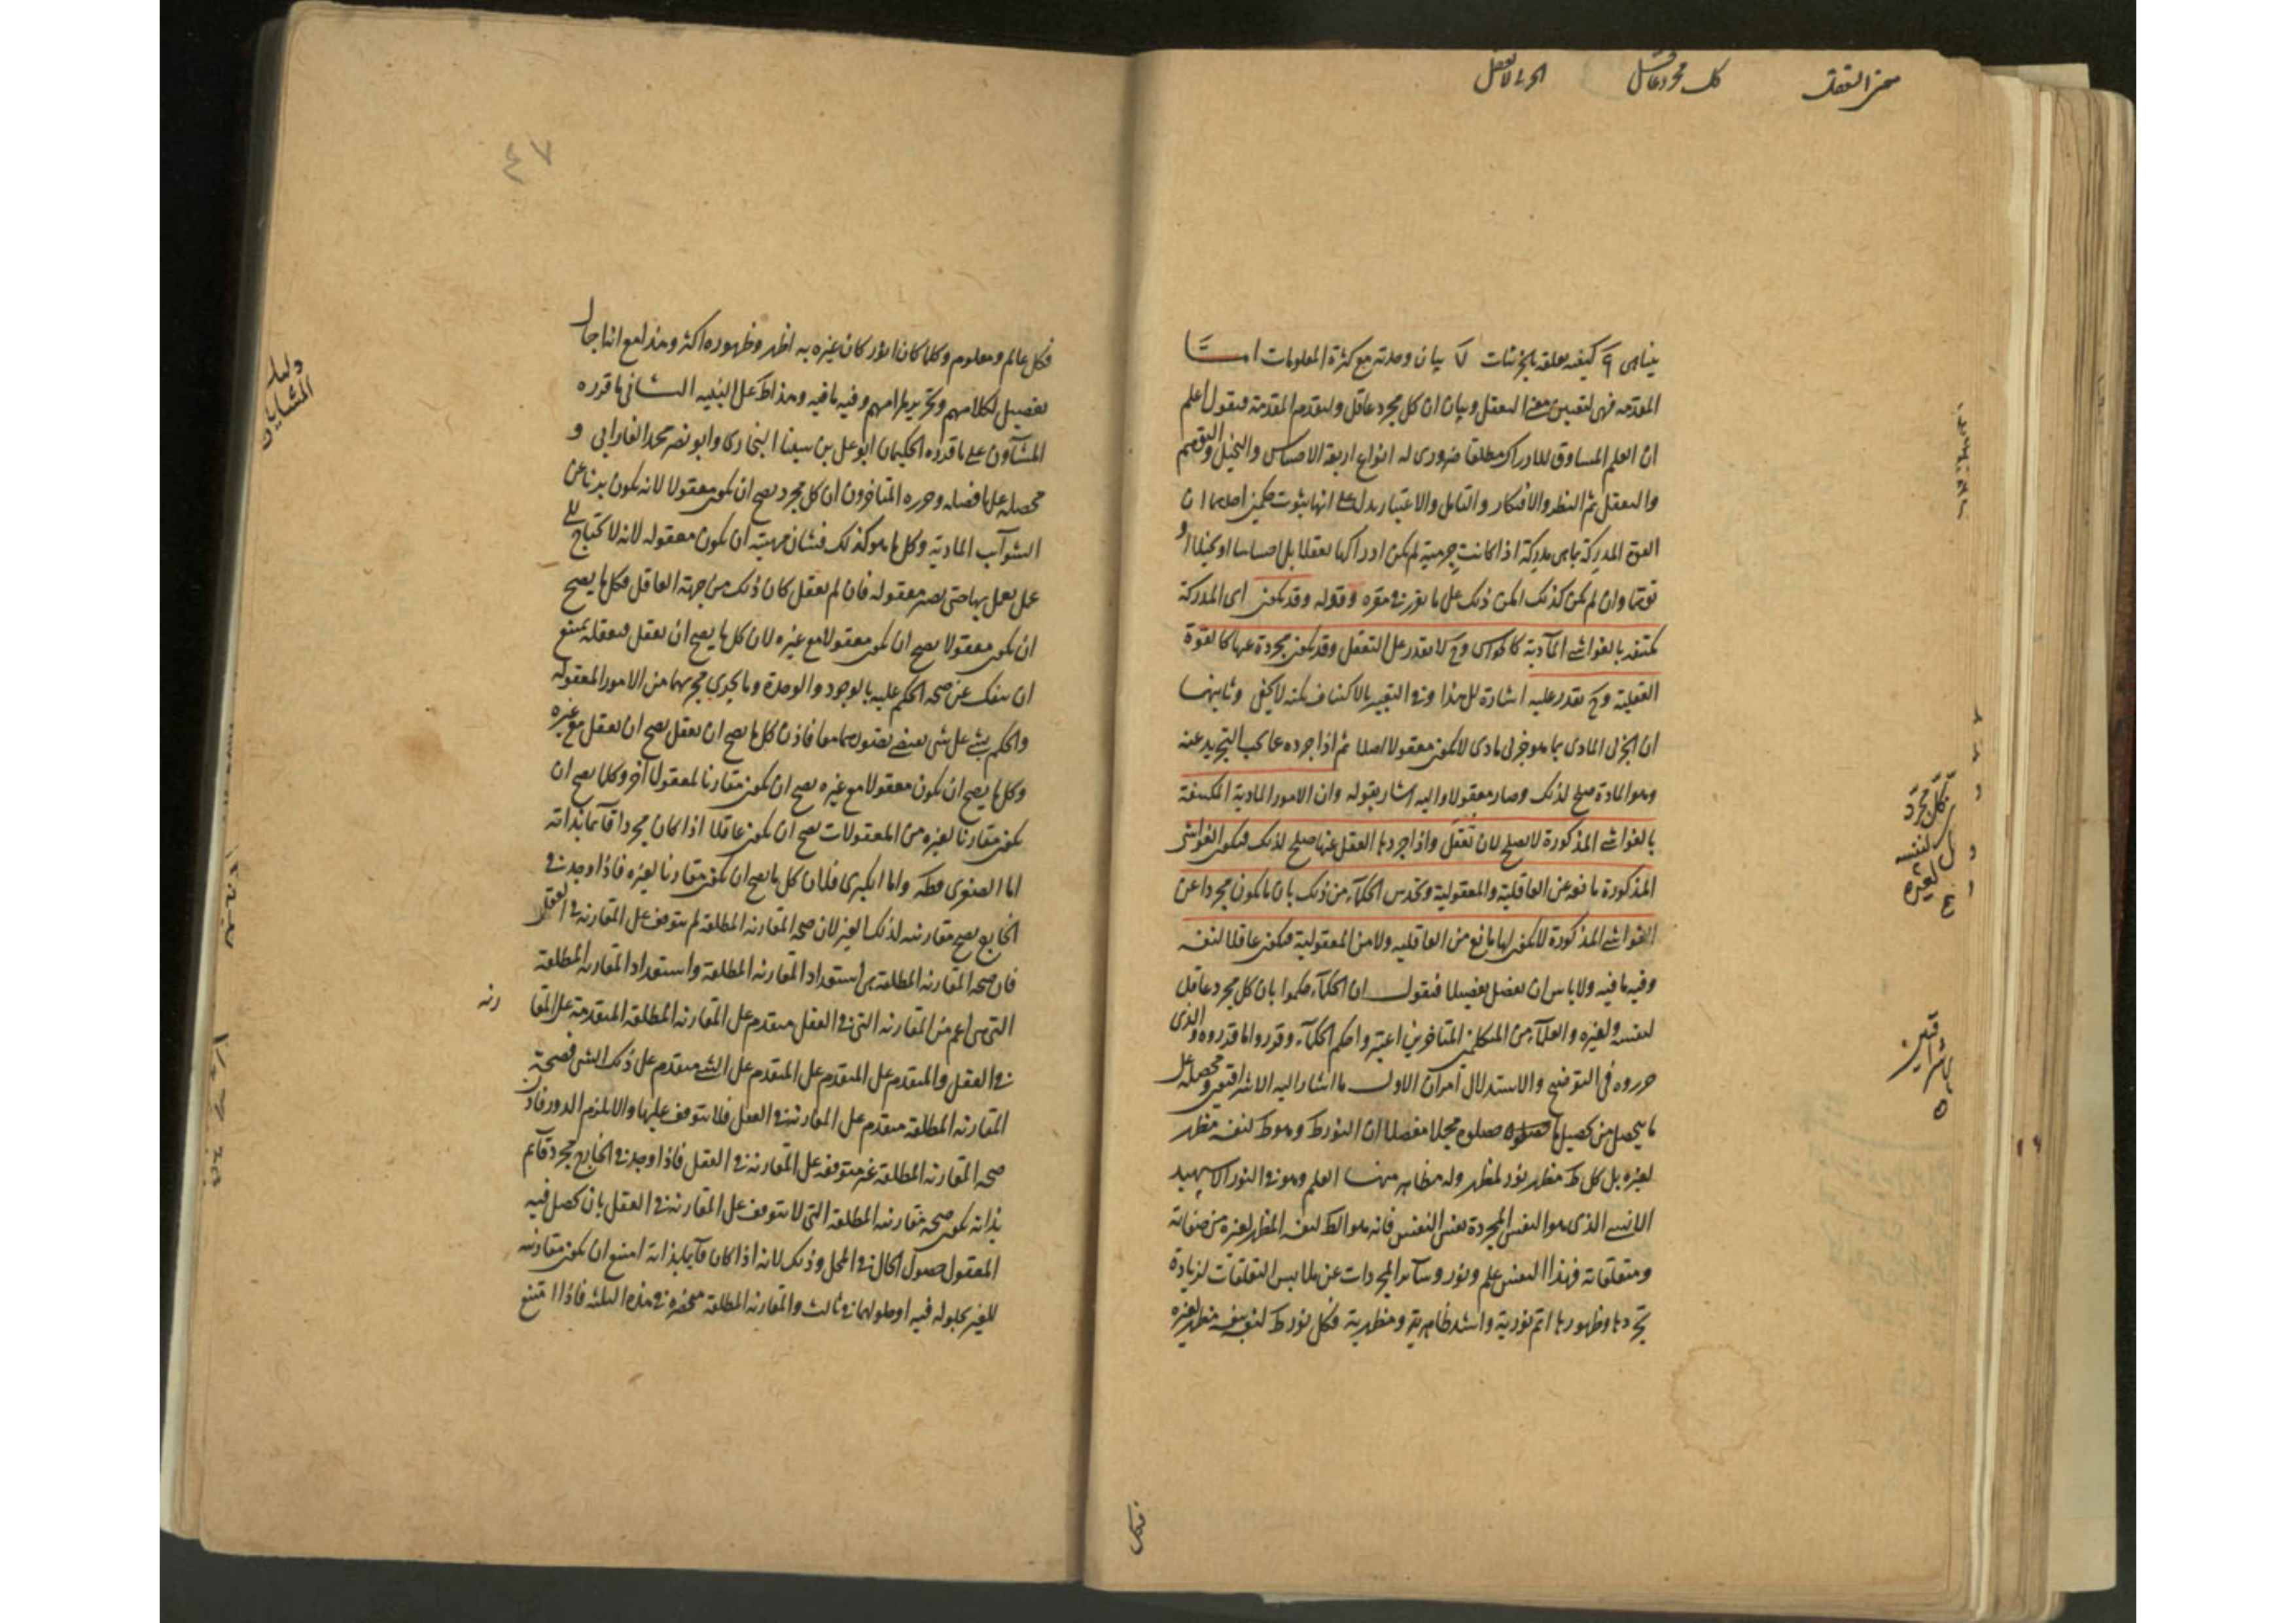 معنى التعقل
كل مجرد عاقل
الجزئي لا يعقل
كيفية تعلقه بالجزئيات لا بيان وحدته مع كثرة المعلومات اما
المقدمة فهى لتعيين معنى التعقل وبيان ان كل مجرد عاقل ولنقدم المقدمة فنقول اعلم
ان العلم المساوق للادراك مطلقا ضرورى له انواع اربعة الاحساس والتخيل والتوهم
والتعقل ثم النظر والافتكار والتامل والاعتبار يدل على انها بثوت حكمين احدهما ان
القوة المدركة بما هى مدركة اذا كانت جرمية لم يكن ادراكها تعقلا بل احساسا او تخيلا او
توهما وان لم تكن كذلك امكن ذلك على ما تقرر فى مقره وقوله وقد تكون اى المدركة
مكتنفة بالغواشى المادية كالحواس وح لا تقدر على التعقل وقد تكون مجردة عنها كالقوة
العقلية وح تقدر عليه اشارة الى هذا وفى التعبير بالاكتناف نكتة لا تخفى وثانيهما
ان الجزئى المادى بما هو جزئى مادى لا يكون معقولا اصلا ثم اذا جرده عما يجب التجريد عنه
وهو المادة صلح لذلك وصار معقولا واليه اشار بقوله وان الامور المادية المكتنفة
بالغواشى المذكورة لا يصلح لان تعقل واذا جردها العقل عنها صلح لذلك فيكون الغواشى
المذكورة مانعة عن العاقلية والمعقولية وتحدس الحكماء من ذلك بان ما يكون مجردا عن
الغواشى المذكورة لا يكون لها مانع من العاقلية ولا من المعقولية فيكون عاقلا لنفسه
وفيه ما فيه ولا باس ان نفصل تفصيلا فنقول ان الحكماء حكموا بان كل مجرد عاقل
لنفسه ولغيره والعلماء من المتكلمين المتاخرين اعتبروا حكم الحكماء وقرروا ما قرروه والذى
حرروه فى التوضيح والاستدلال امران الاول ما اشار اليه الاشراقيون ومحصله على
ما يتحصل من تحصيل ما حصلوه مجملا مفصلا ان النور ظ وهو ظ لنفسه مظهر
لغيره بل كل ظ مظهر نور لمظهر وله مظاهر منها العلم وهو فى النور الاسپهبد
الانسى الذى هو النفس المجردة نفس النفس فانه هو الظ لنفسه المظهر لغيره من صفاته
ومتعلقاته فهذا النفس علم ونور وسائر المجردات عن ملابس التعلقات لزيادة
تجردها وظهورها اتم نورية واشد ظاهرية ومظهرية فكل نور ظ لنفسه مظهر لغيره
كل مجرد
لنفسه
لغيره
فكل
٤٧
فكل عالم ومعلوم وكلما كان انور كان غيره به اظهر وظهوره اكثر وهذا مع انه اجمال
تفصيل لكلامهم وتحرير لمرامهم وفيه ما فيه وهذا ظ على النبيه الثانى ما قرره
المشاؤن على ما قرره الحكيمان ابو على بن سينا البخارى وابو نصر محمد الفارابى و
محصله على ما فصله وحرره المتاخرون ان كل مجرد يصح ان يكون معقولا لانه يكون بريئا عن
الشوائب المادية وكل ما هو كذلك فشان مهيته ان تكون معقولة لانه لا تحتاج الى
عمل يعمل بها حتى يصير معقولة فان لم يعقل كان ذلك من جهة العاقل فكل ما يصح
ان يكون معقولا يصح ان يكون معقولا مع غيره لان كل ما يصح ان يعقل فتعقله يمتنع
ان ينفك عن صحة الحكم عليه بالوجود والوحدة وما يجرى مجريهما من الامور المعقولة
والحكم بشئ على شئ يقتضى تصورهما معا فاذن كل ما يصح ان يعقل يصح ان يعقل مع غيره
وكل ما يصح ان يكون معقولا مع غيره يصح ان يكون مقارنا لمعقول آخر وكلما يصح ان
يكون مقارنا لغيره من المعقولات يصح ان يكون عاقلا اذا كان مجردا قائما بذاته
اما الصغرى فظ واما الكبرى فلان كل ما يصح ان يكون مقارنا لغيره فاذا وجد فى
الخارج يصح مقارنته لذلك الغير لان صحة المقارنة المطلقة لم يتوقف على المقارنة فى العقل
فان صحة المقارنة المطلقة هى استعداد المقارنة المطلقة واستعداد المقارنة المطلقة
التى هى اعم من المقارنة التى فى العقل متقدم على المقارنة المطلقة المتقدمة على المقا رنة
فى العقل والمتقدم على المتقدم على المتقدم على الشئ متقدم على ذلك الشئ فصحة
المقارنة المطلقة متقدم على المقارنة فى العقل فلا يتوقف عليها والا يلزم الدور فاذن
صحة المقارنة المطلقة غير متوقفة على المقارنة فى العقل فاذا وجد فى الخارج مجرد قائم
بذاته يكون صحة مقارنته المطلقة التى لا يتوقف على المقارنة فى العقل بان يحصل فيه
المعقول حصول الحال فى المحل وذلك لانه اذا كان قائما بذاته امتنع ان يكون مقارنته
للغير بحلوله فيه او حلولهما فى ثالث والمقارنة المطلقة منحصرة فى هذه الثلثة فاذا امتنع
دليل
المشايين